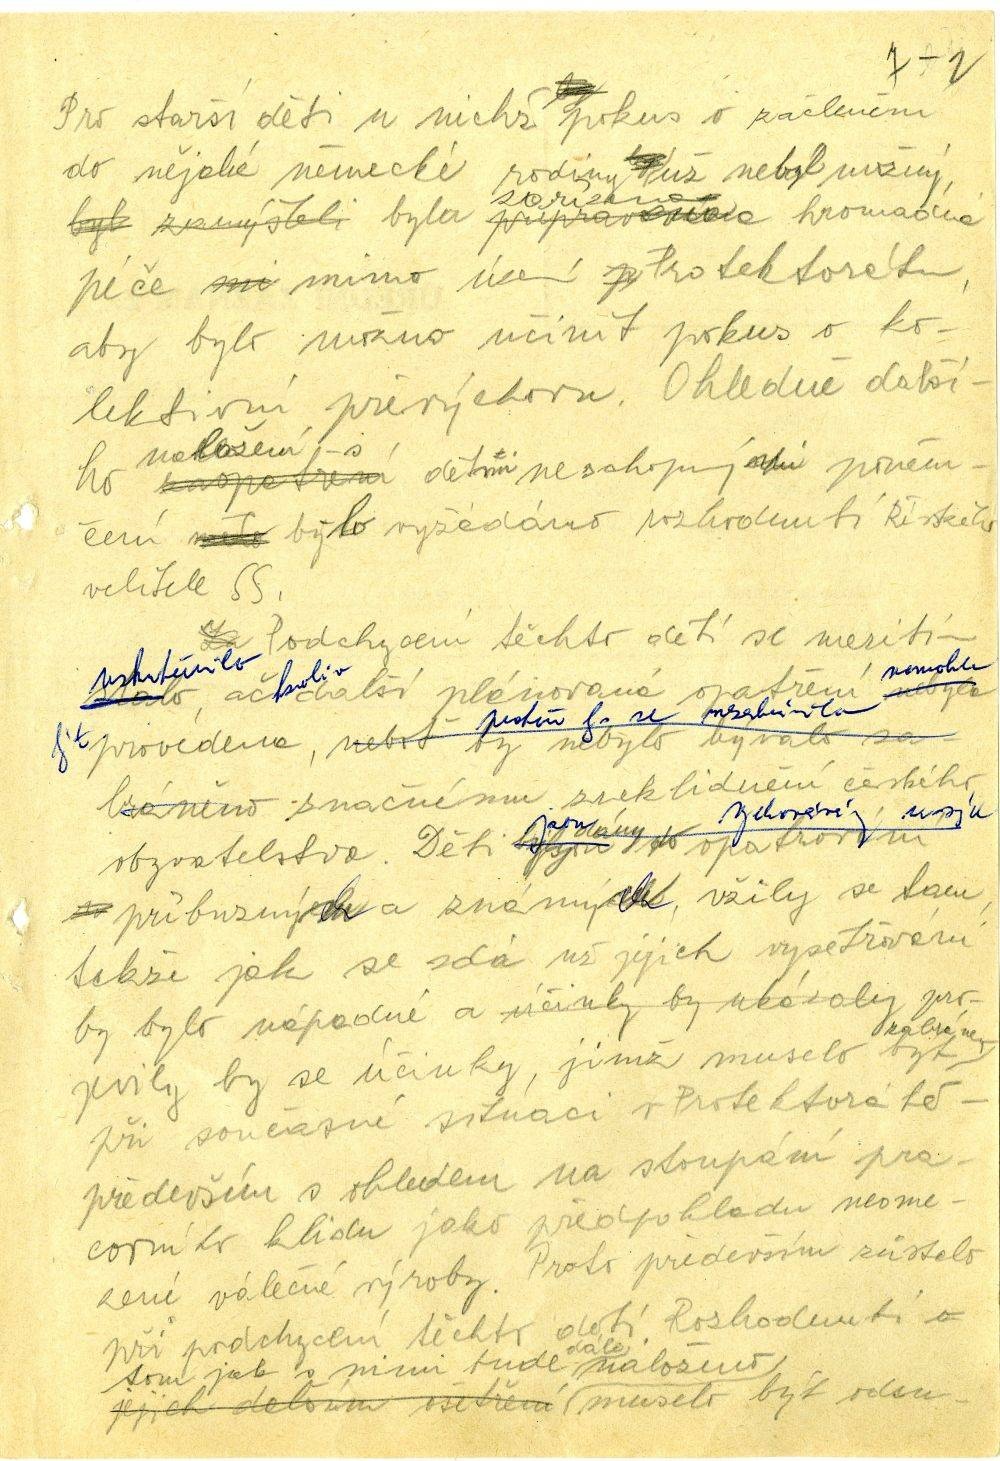 7-2
Pro starší děti u nichž pokus o začlenění
do nějaké německé rodiny už nebyl možný,
byl zamýšleli byla zařízena připravována hromadná
péče mi mimo území p Protektorátu,
aby bylo možno učinit pokus o ko-
lektivní převýchovu. Ohledně další-
ho naložení s zaopatření dětmi neschopnými poněm-
čení bylo vyžádáno rozhodnutí Říského
velitele SS.
Podchycení těchto dětí se mezitím
uskutečnilo stalo, ačkoliv další plánovaná opatření nemohla nebyla
být provedena, neboť by nebylo bývalo za-
bráněno značnému zneklidnění českého
obyvatelstva. Děti jsou vychovávány u svých opatrování
příbuzných a známých, vžily se tam,
takže jak se zdá už jejich vyšetřování
by bylo nápadné a účinky by ukázaly pro-
jevily by se účinky, jimž muselo být zabráněno
při současné situaci v Protektorátě -
především s ohledem na stoupání pra-
covního klidu jako předpokladu neome-
zené válečné výroby. Proto především zůstalo
při podchycení těchto dětí. Rozhodnutí o
tom jak s nimi bude dále naloženo
jejich dalším ošetření muselo být odsu-